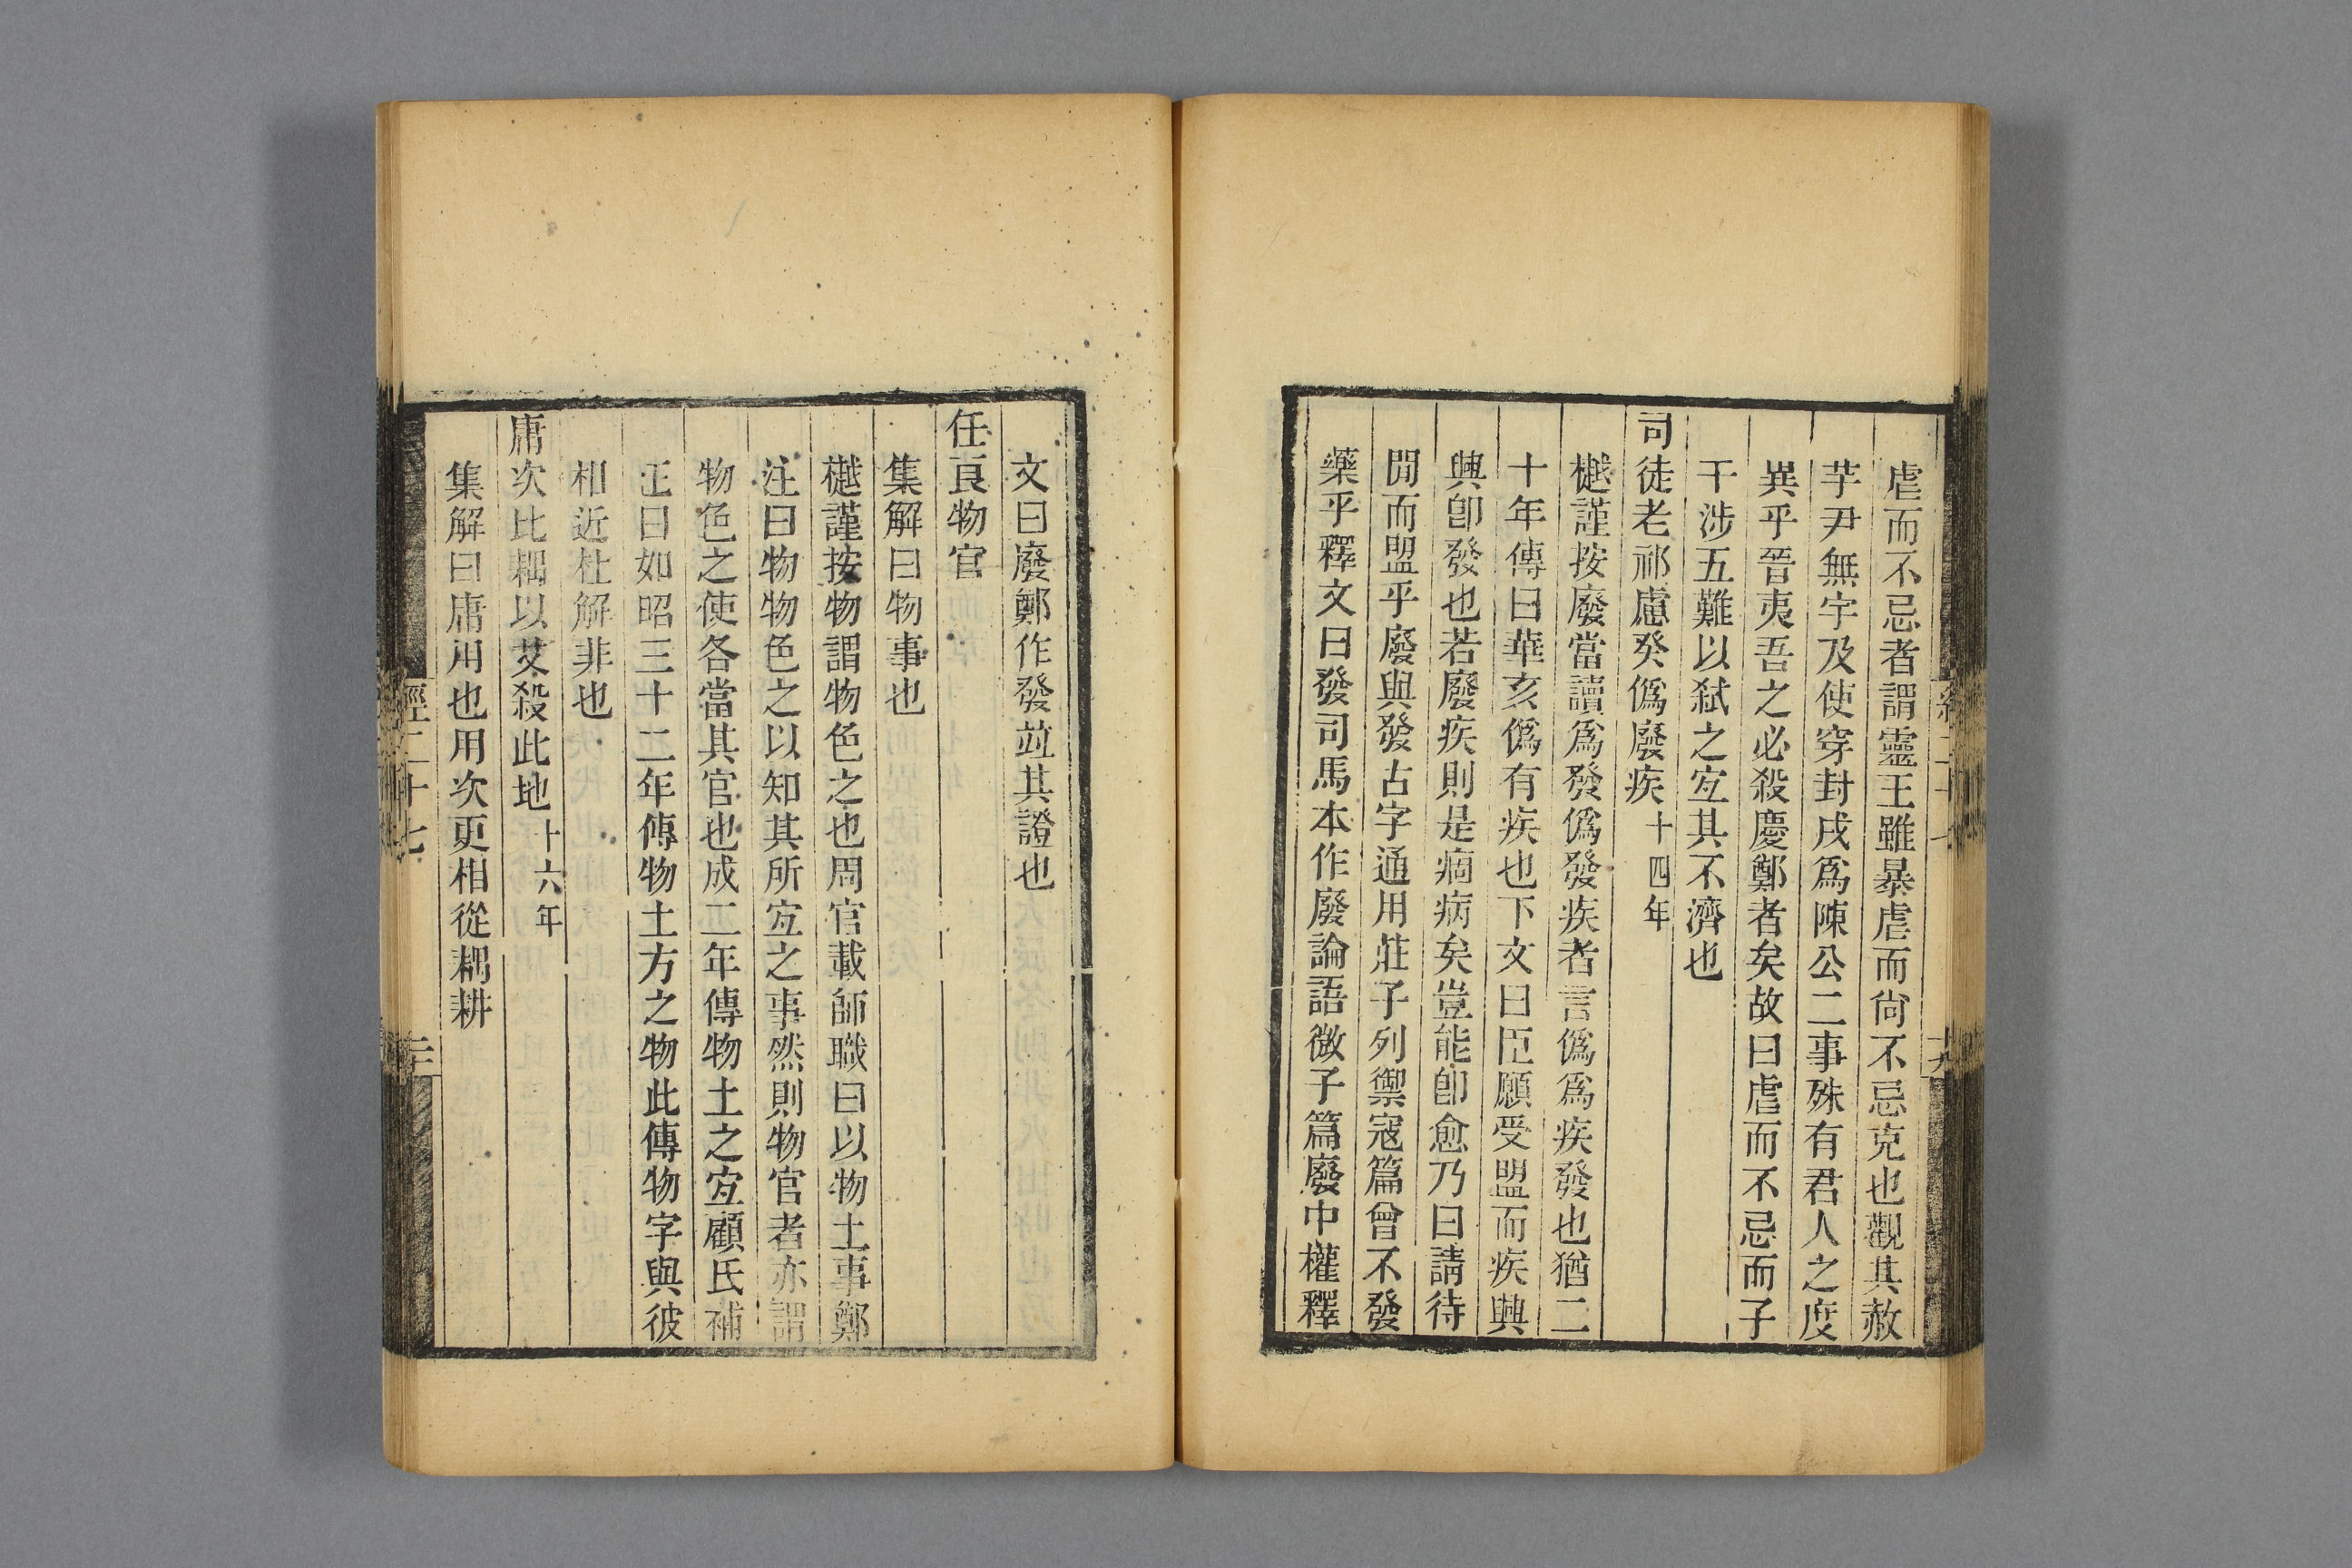 虐而不忌者謂靈王雖暴虐而尙不忌克也觀其赦
芋尹無宇及使穿封戌爲陳公二事殊有君人之度
異乎晉夷吾之必殺慶鄭者矣故曰虐而不忌而子
干涉五難以弑之宐其不濟也
司徒老祁慮癸僞廢疾十四年
樾謹按廢當讀爲發僞發疾者言僞爲疾發也猶二
十年傳曰華亥僞有疾也下文曰臣願受盟而疾興
興卽發也若廢疾則是痼病矣豈能卽愈乃曰請待
閒而盟乎廢與發古字通用莊子列禦寇篇曾不發
藥乎釋文曰發司馬本作廢論語微子篇廢中權釋
文曰廢鄭作發竝其證也
任良物官
集解曰物事也
樾謹按物謂物色之也周官載師職曰以物土事鄭
注曰物物色之以知其所宐之事然則物官者亦謂
物色之使各當其官也成二年傳物土之宐顧氏補
正曰如昭三十二年傳物土方之物此傳物字與彼
相近杜解非也
庸次比耦以艾殺此地十六年
集解曰庸用也用次更相從耦耕
經二十七
二十